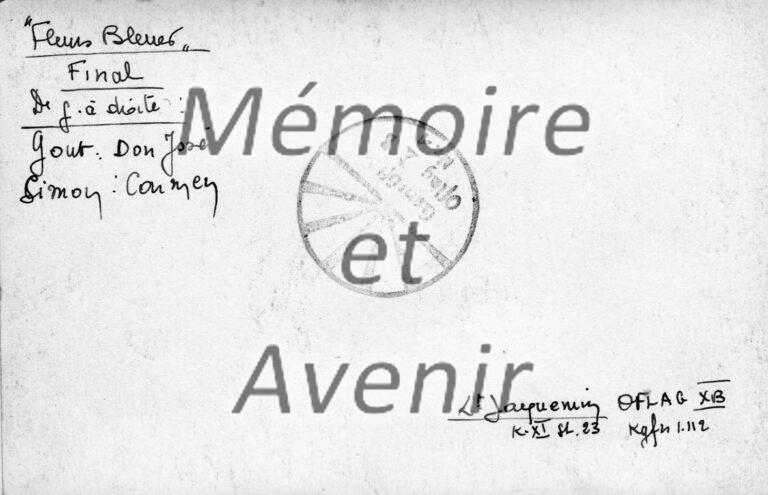 "Fleurs Bleues"
Final
De g. à droite :
Gout : Don José
Simon : Carmen
Mémoire
et
Avenir
Lt Jacquemin OFLAG XB
K.XI St. 23 Kgfn 1.112